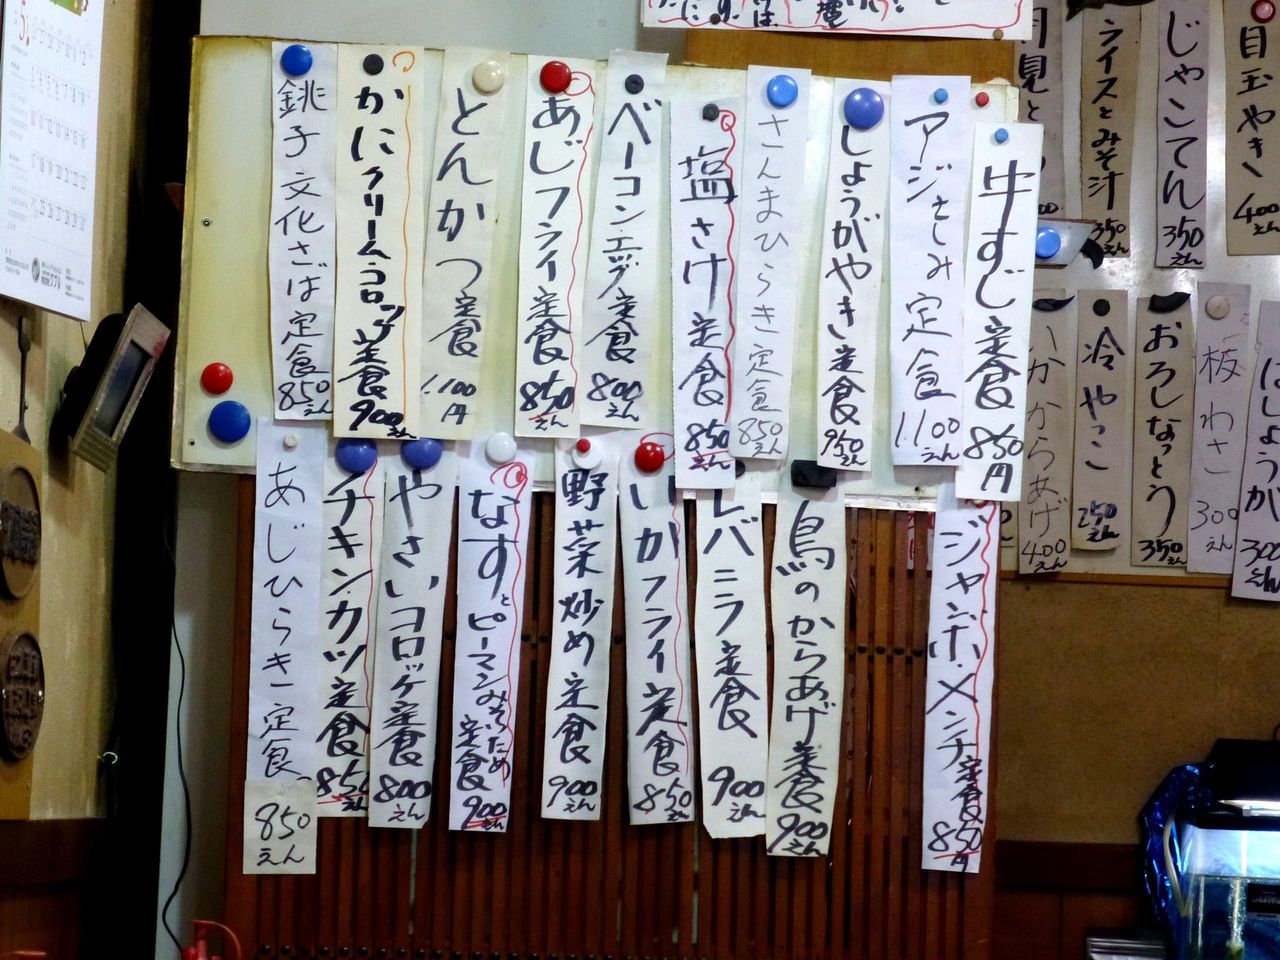 牛すじ定食 850円
アジさしみ定食 1,100えん
しょうがやき定食 950えん
さんまひらき定食 850えん
塩さけ定食 850えん
ベーコン・エッグ定食 800えん
あじフライ定食 850えん
とんかつ定食 1,100円
かにクリームコロッケ定食 900えん
銚子文化さば定食 850えん
ジャンボ・メンチ定食 850円
鳥のからあげ定食 900えん
レバニラ定食 900えん
いかフライ定食 850えん
野菜炒め定食 900えん
なすとピーマンみそいため定食 900えん
やさいコロッケ定食 800えん
チキンカツ定食 850えん
あじひらき定食 850えん
目玉やき 400えん
じゃこてん 350えん
ライスとみそ汁 350えん
月見と
しょうが 300えん
板わさ 300えん
おろしなっとう 350えん
冷やっこ 250えん
いかからあげ 400えん